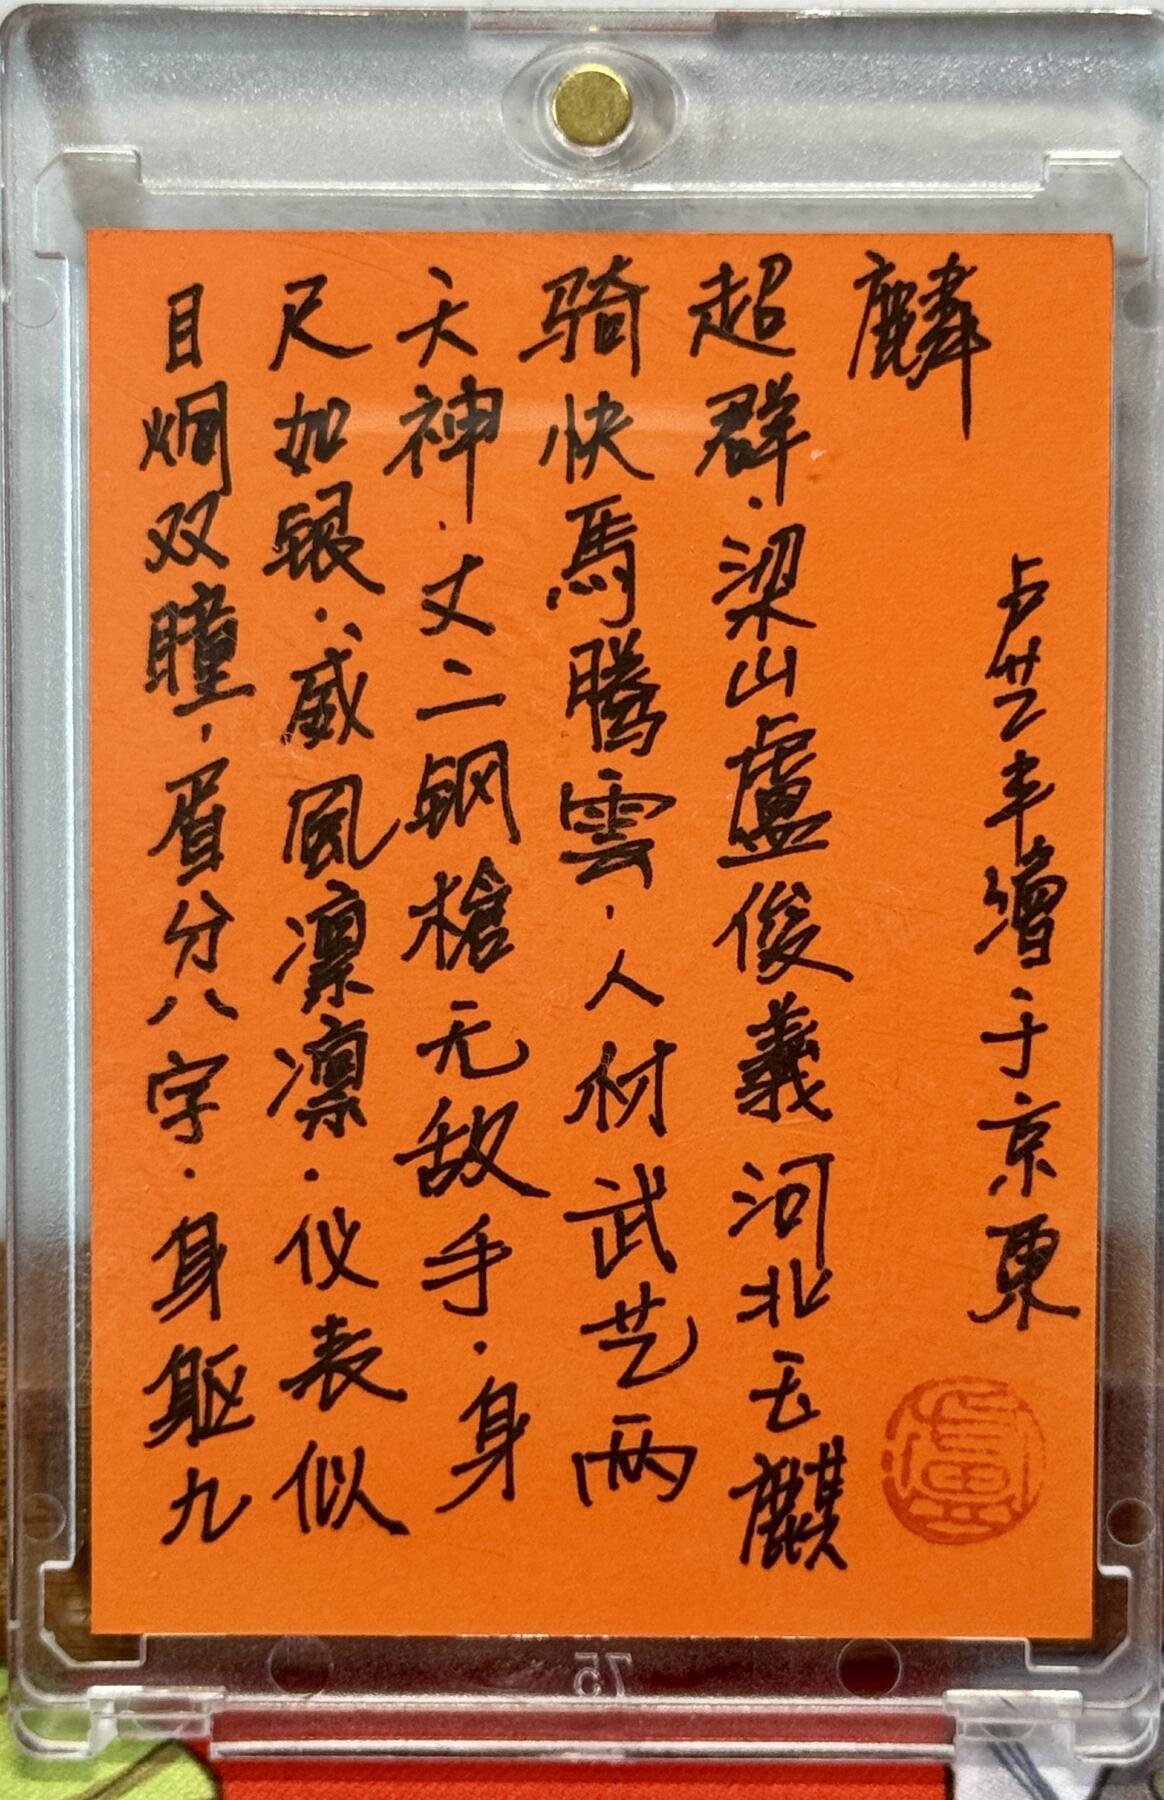 目炯双瞳，眉分八字．身躯九
尺如银．威風凛凛．仪表似
天神．丈二钢槍无敌手．身
骑快馬騰雲，人材武艺两
超群．梁山盧俊義河北玉麒
麟
卢艺丰赠于京東
盧